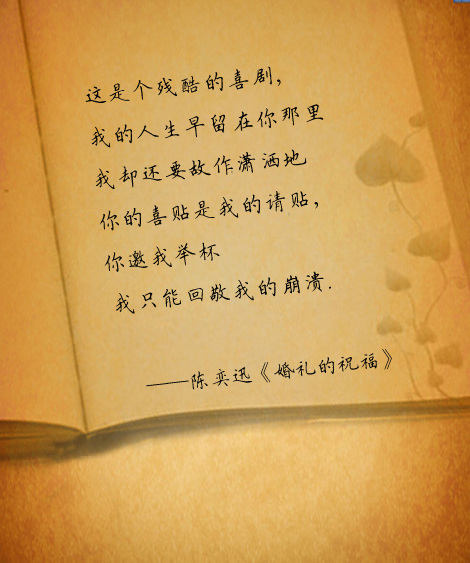 这是个残酷的喜剧,
我的人生早留在你那里
我却还要故作潇洒地
你的喜贴是我的请贴,
你邀我举杯
我只能回敬我的崩溃.
——陈奕迅《婚礼的祝福》